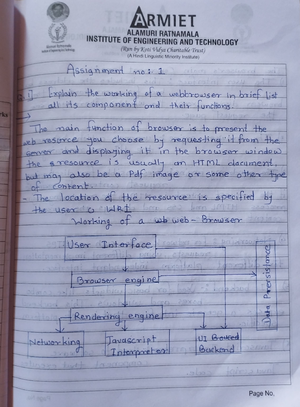 ARMIET
ALAMURI RATNAMALA
INSTITUTE OF ENGINEERING AND TECHNOLOGY
(Run by Koti Vidya Charitable Trust)
(A Hindi Linguistic Minority Institute)
Assignment no: 1
Q.1] Explain the working of a webbrowser in brief. list
all its component and their functions.
→
- The main function of browser is to present the
web rosorce you choose by requesting it from the
server and displaying it in the browser window
the resource is usually an HTML document,
but may also be a Pdf image or some other type
of content.
- The location of the resource is specified by
the user a URI.
Working of a wb web-Browser
User Interface
Browser engine
Rendering engine
Networking
Javascript
Interpretor
UI
Backend
Data Persistance
Page No.